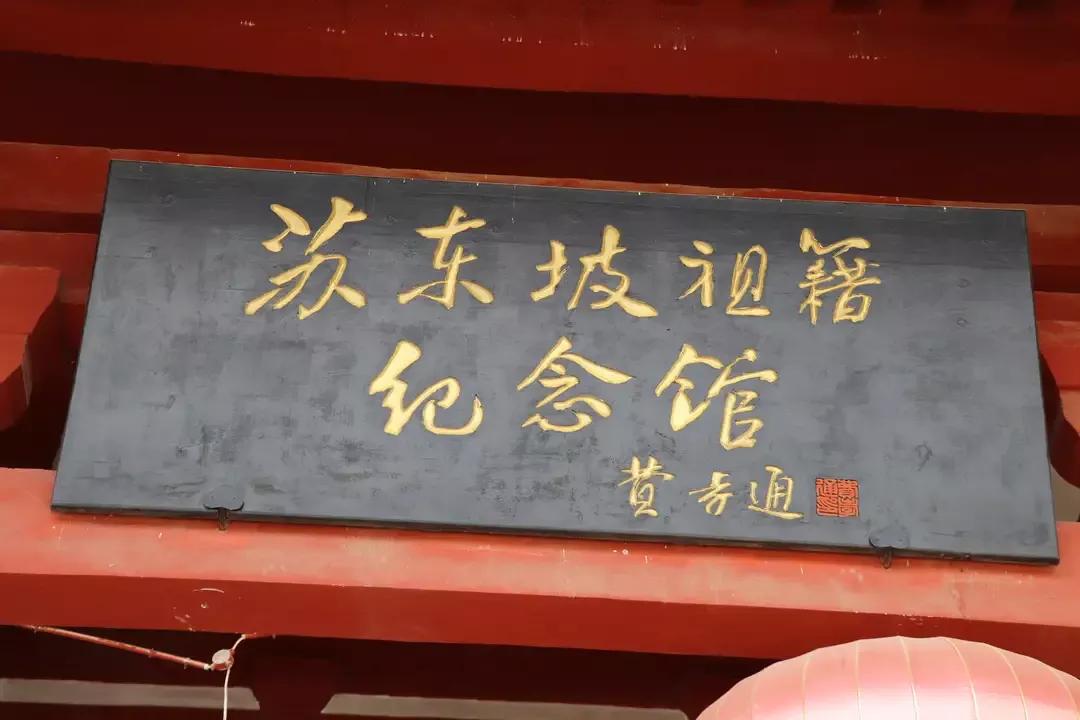 苏东坡祖籍
纪念馆
费孝通